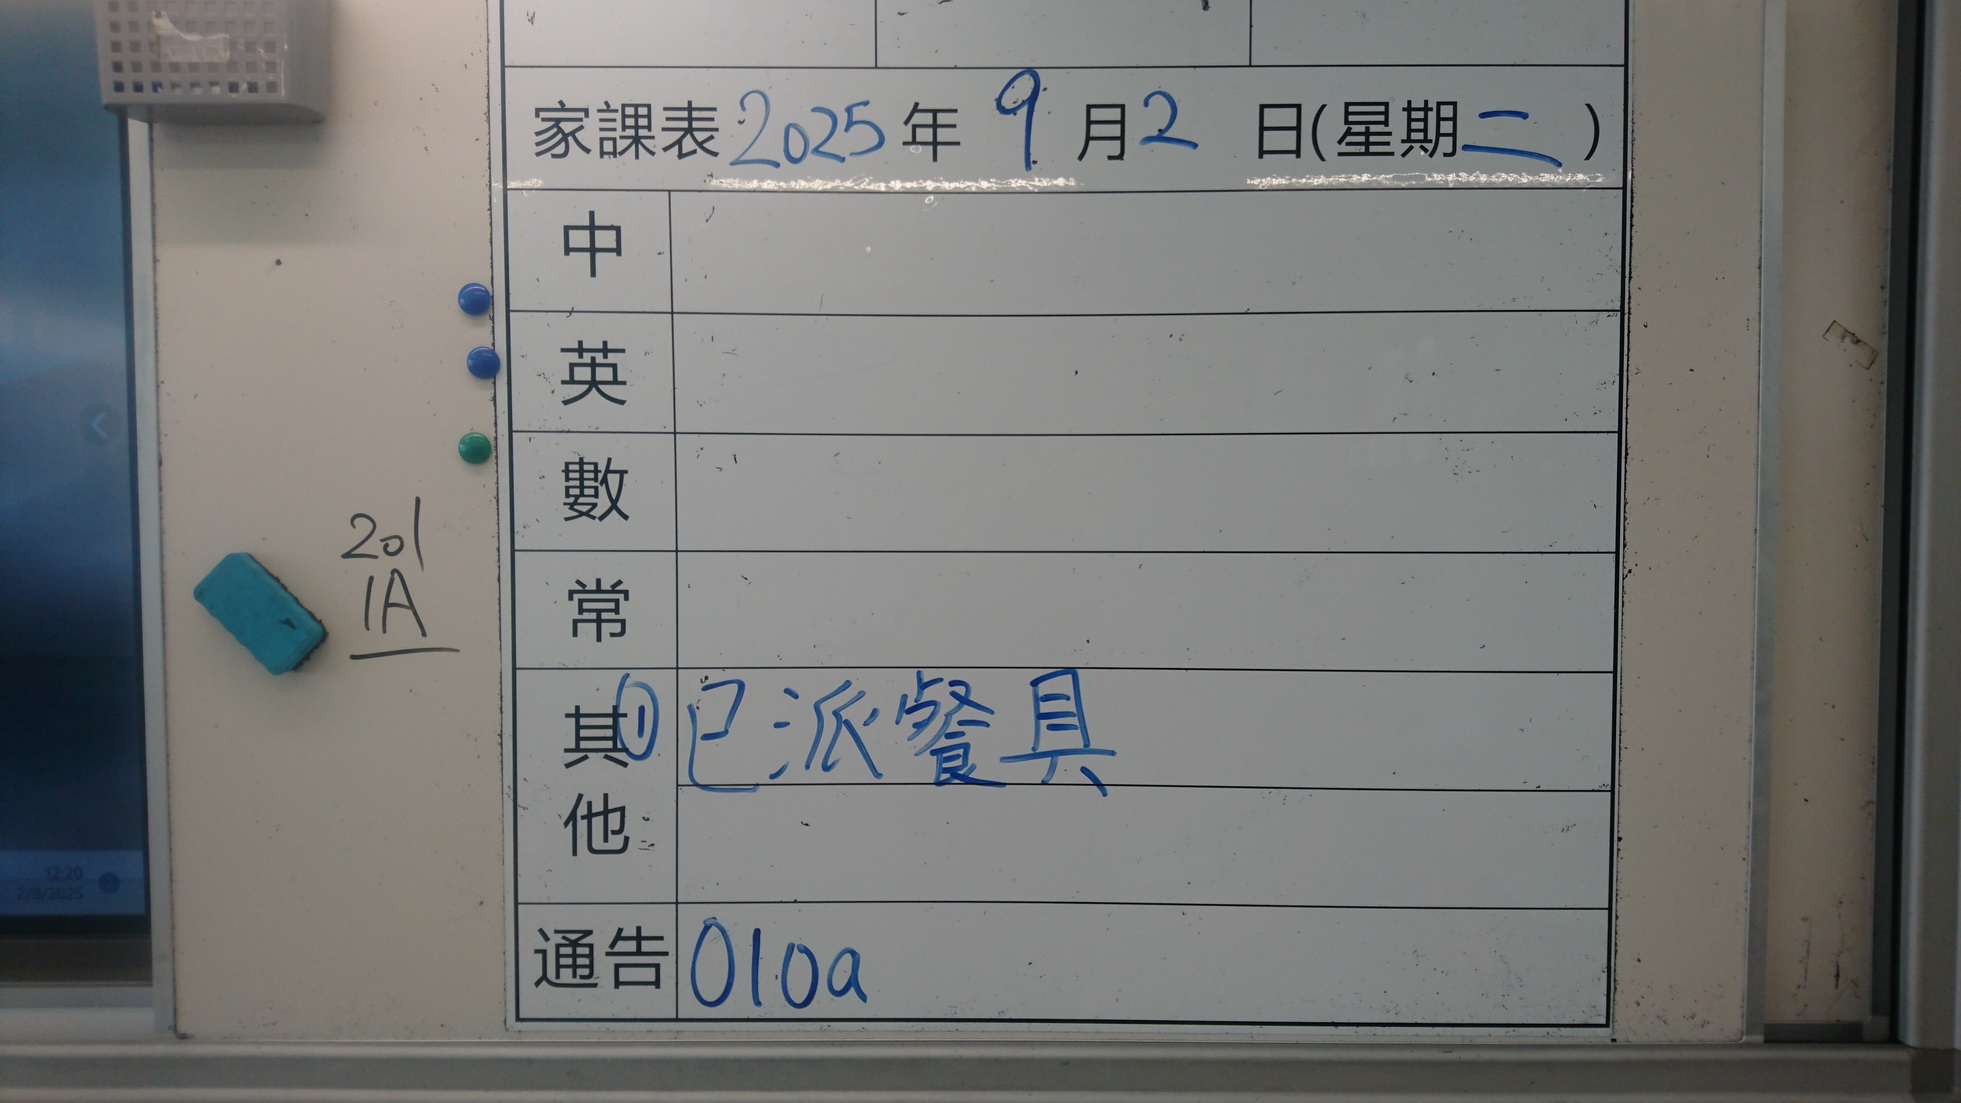 家課表 2025 年 9 月 2 日(星期二)
中
英
數
常
201
1A
其他 ① 已派餐具
通告 010a
12:20
2/9/2025